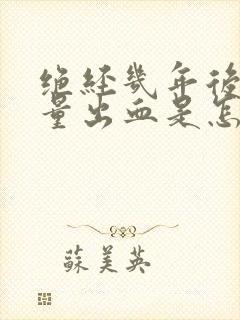 絕經幾年後
量出血是怎
蘇美英